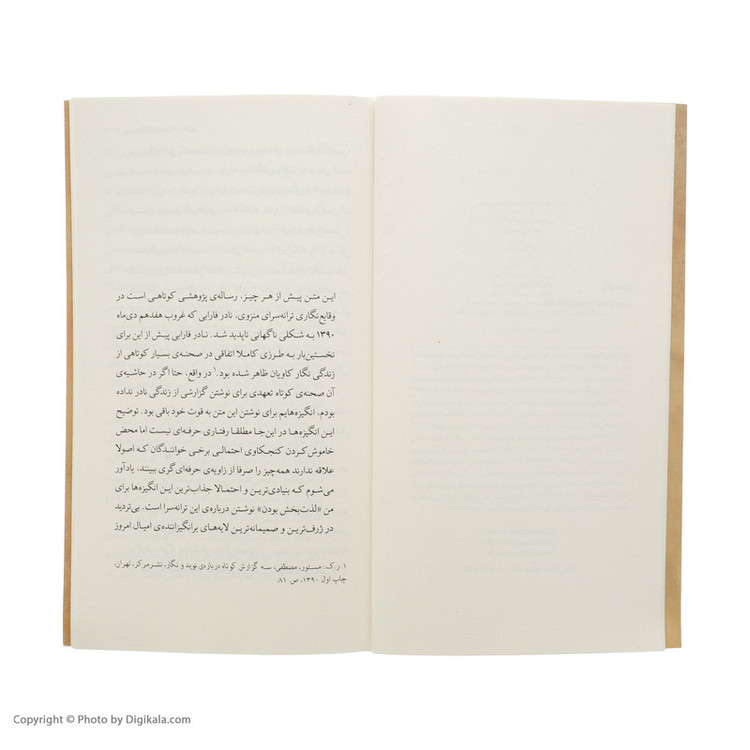 این متن پیش از هر چیز، رساله‌ی پژوهشی کوتاهی است در
وقایع‌نگاری ترانه‌سرای منزوی، نادر فارابی که غروب هفدهم دی‌ماه
۱۳۹۰ به شکلی ناگهانی ناپدید شد. نادر فارابی پیش از این برای
نخستین‌بار به طرزی کاملا اتفاقی در صحنه‌ی بسیار کوتاهی از
زندگی نگار کاویان ظاهر شده بود.۱ در واقع، حتا اگر در حاشیه‌ی
آن صحنه‌ی کوتاه تعهدی برای نوشتن گزارشی از زندگی نادر نداده
بودم، انگیزه‌هایم برای نوشتن این متن به قوت خود باقی بود. توضیح
این انگیزه‌ها در این‌جا مطلقا رفتاری حرفه‌ای نیست اما محض
خاموش‌کردن کنجکاوی احتمالی برخی خوانندگان که اصولا
علاقه ندارند همه‌چیز را صرفا از زاویه‌ی حرفه‌ای‌گری ببینند، یادآور
می‌شوم که بنیادی‌ترین و احتمالا جذاب‌ترین این انگیزه‌ها برای
من «لذت‌بخش بودن» نوشتن درباره‌ی این ترانه‌سرا است. بی‌تردید
در ژرف‌ترین و صمیمانه‌ترین لایه‌های برانگیزاننده‌ی امیال امروز
۱ ر.ک: مستور، مصطفی، سه گزارش کوتاه درباره‌ی نوید و نگار، نشرمرکز، تهران،
چاپ اول ۱۳۹۰، ص. ۸۱
Copyright © Photo by Digikala.com